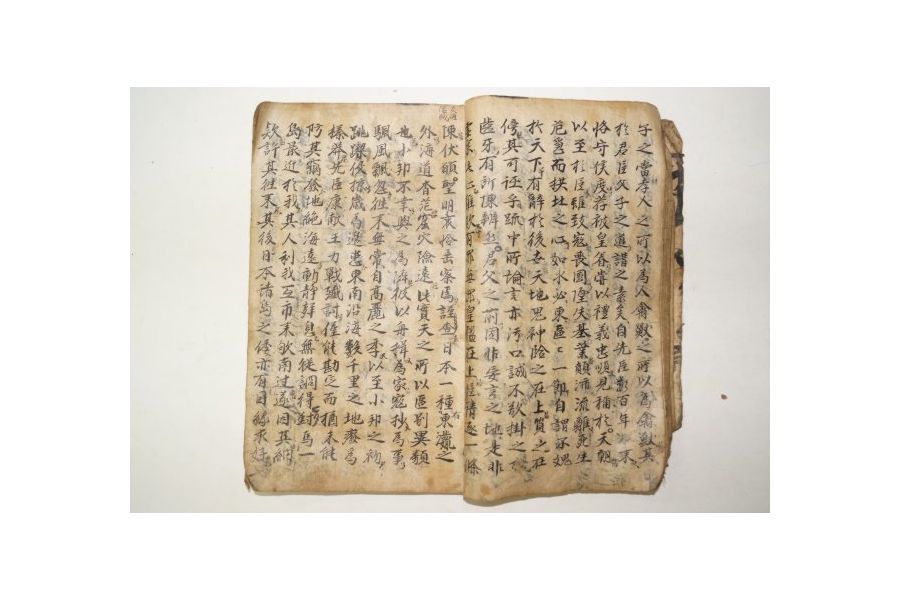 子之當孝人之所以爲人禽獸之所以爲禽獸其
於君臣父子之道講之素矣自先臣數百年來
恪守侯度荐被皇眷常以禮義忠順見稱於天朝
以至於臣雖致寇喪國隳失基業顚沛流離死生
危迫而拱北之心如水必東區區一節自謂不愧
於天下有辭於後世天地鬼神臨之在上質之在
傍其可誣乎疏中所論言亦污口誠不欲掛之
齒牙有所陳辨然君父之前固非妄言之地是非
陳伏願聖明哀怜去察焉謹査日本一種東濊之
外海道杳茫窟穴險遠此實天之所以區別異類
也小邦不幸與之爲隣彼以舟楫爲家寇抄爲事
颿風飄忽徃來無常自高麗之季以至小邦之初
跳踉侵掠歲爲邊患東南沿海數千里之地廢爲
榛莽先臣康獻王力戰殲討僅能勘定而猶未能
防其竊發地絶海遠動静聲息無從調得對馬一
島最近於我其人利我互市來欵南邊遂因其納
欵許其徃來其後日本諸島之倭亦有因緣求好